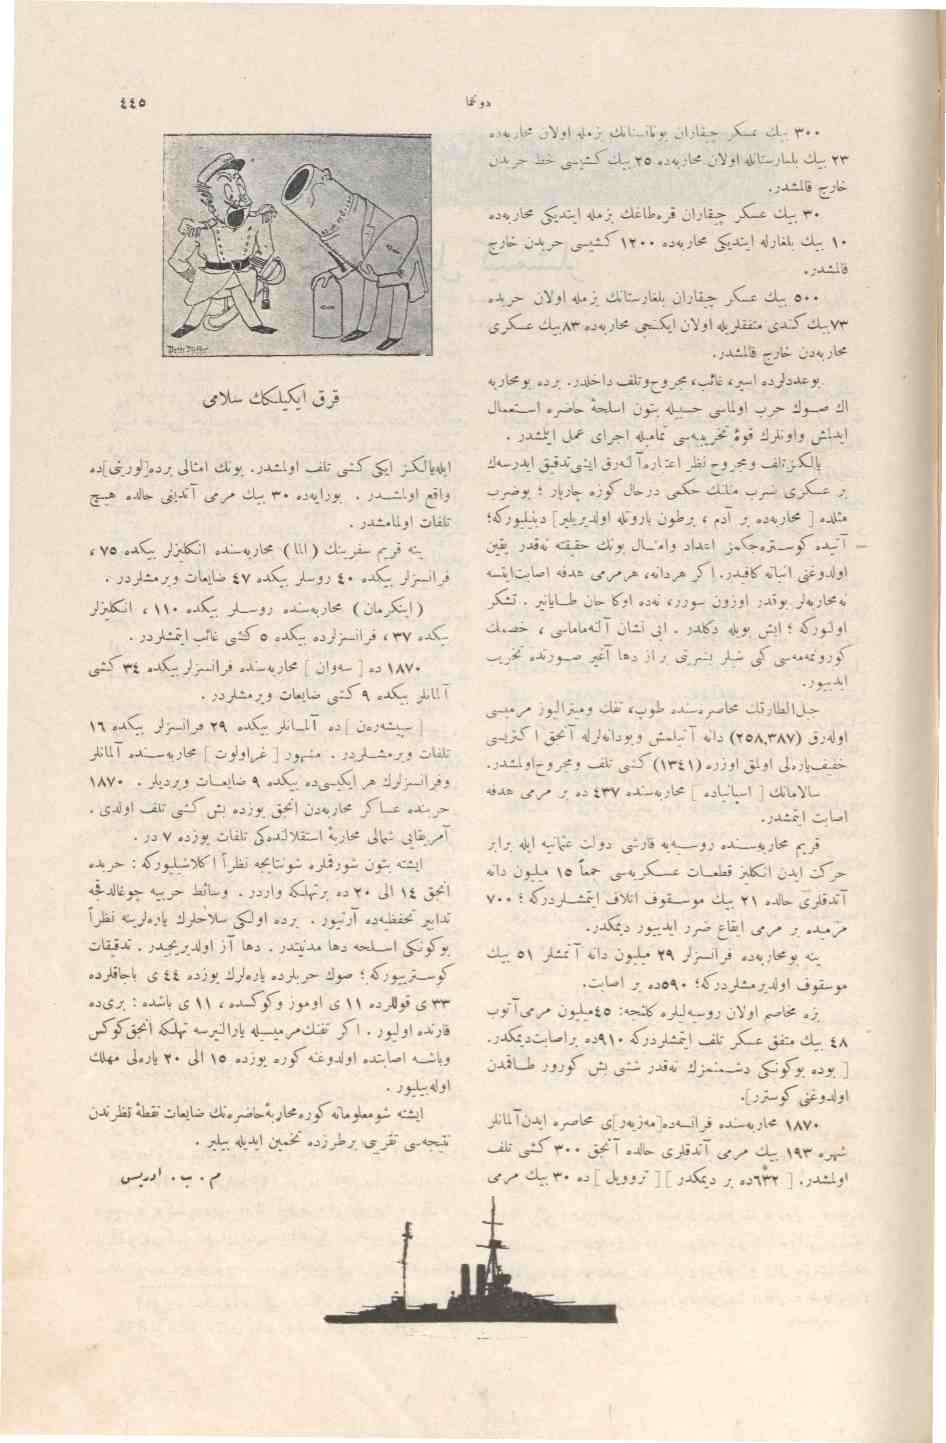 دونما
٤٤٥
٣٠٠ بيك عسكر چيقاران يونانستانك بزمله اولان محاربه‌ده
٢٣ بيك بلغارستانله اولان محاربه‌ده ٢٥ بيك كشيسى خط حربدن
خارج قالمشدر.
٣٠ بيك عسكر چيقاران قره‌طاغك بزمله ايتديكى محاربه‌ده
١٠ بيك بلغارله ايتديكى محاربه‌ده ١٢٠٠ كشيسى حربدن خارج
قالمشدر.
٥٠٠ بيك عسكر چيقاران بلغارستانك بزمله اولان حربده
٧٣ بيك كندى متفقلريله اولان ايكنجى محاربه‌ده ٨٣ بيك عسكرى
محاربه‌دن خارج قالمشدر.
بوعددلرده اسير، غائب، مجروح وتلف داخلدر. برده بومحاربه
اك صوك حرب اولماسى حسبيله بتون اسلحهٔ حاضره استعمال
ايدلمش واونلرك قوهٔ تخريبيه‌سى تماميله اجراى عمل ايلمشدر .
يالكز تلف ومجروح نظر اعتباره آلنه‌رق ايشى تدقيق ايدرسه‌ك
بر عسكرى ضرب مثلنك حكمى درحال كوزه چارپار ؛ بوضرب
مثلده [ محاربه‌ده بر آدم ، برطون باروتله اولديريلير ] دينيليوركه؛
آتيده كوستره‌جكمز اعداد وامثال بونك حقيقته نه‌قدر يقين
اولدوغنى اثباته كافيدر. اكر هردانه، هرمرمى هدفه اصابت ايتسه
نه محاربه‌لر بوقدر اوزون سورر، نه‌ده اوكا جان طايانير . تشكر
اولنوركه ؛ ايش بويله دكلدر . ايى نشان آلنه‌ماماسى ، خصمك
كورونمه‌مه‌سى كبى شيلر بشريتى براز دها آغير صورتده تخريب
ايدييور.
جبل الطارقك محاصره‌سنده طوپ، تفك وميترالیوز مرميسى
اوله‌رق (٢٥٨,٣٨٧) دانه آتيلمش وبودانه‌لرله آنجق اكثريسى
خفيف ياره‌لى اولمق اوزره (١٣٤١) كشى تلف ومجروح اولمشدر.
سالامانك [ اسپانياده ] محاربه‌سنده ٤٣٧ ده بر مرمى هدفه
اصابت ايتمشدر.
قريم محاربه‌سنده روسيه‌يه قارشى دولت عثمانيه ايله برابر
حركت ايدن انكليز قطعات عسكريه‌سى جمعاً ١٥ مليون دانه
آتدقلرى حالده ٢١ بيك موسقوف اتلاف ايتمشلردركه ؛ ٧٠٠
مرميده بر مرمى ايقاع ضرر ايدييور ديمكدر.
ينه بومحاربه‌ده فرانسزلر ٢٩ مليون دانه آتمشلر ٥١ بيك
موسقوف اولديرمشلردركه؛ ٥٩٠ده بر اصابت.
بزه مخاصم اولان روسيه‌ليلره كلنجه: ٤٥ مليون مرمى آتوب
٤٨ بيك متفق عسكر تلف ايتمشلردركه ٩١٠ده براصابت ديمكدر.
[ بوده بوكونكى دشمنمزك نه‌قدر شئى بش كورور طاقمدن
اولدوغنى كوسترر].
١٨٧٠ محاربه‌سنده فرانسه‌ده[مه‌زيه‌ر]ى محاصره ايدن آلمانلر
شهره ١٩٣ بيك مرمى آتدقلرى حالده آنجق ٣٠٠ كشى تلف
اولمشدر. [ ٦٣٢ده بر ديمكدر ] [ تروويل ] ده ٣٠ بيك مرمى
قرق ايكيلكك سلامى
ايله يالكز ايكى كشى تلف اولمشدر. بونك امثالى برده[لورينى]ده
واقع اولمشدر . بورايه‌ده ٣٠ بيك مرمى آتديغى حالده هيچ
تلفات اولمامشدر .
ينه قريم سفرينك (الما) محاربه‌سنده انكليزلر بيكده ٧٥ ،
فرانسزلر بيكده ٤٠ روسلر بيكده ٤٧ ضايعات ويرمشلردر .
(اينكرمان) محاربه‌سنده روسلر بيكده ١١٠ ، انكليزلر
بيكده ٣٧ ، فرانسزلرده بيكده ٥ كشى غائب ايتمشلردر .
١٨٧٠ ده [ سه‌وان ] محاربه‌سنده فرانسزلر بيكده ٣٤ كشى
آلمانلر بيكده ٩ كشى ضايعات ويرمشلردر .
[ سپيشه‌ره‌ن ] ده آلمانلر بيكده ٢٩ فرانسزلر بيكده ١٦
تلفات ويرمشلردر . مشهور [ غراولوت ] محاربه‌سنده آلمانلر
وفرانسزلرك هر ايكيسى‌ده بيكده ٩ ضايعات ويرديلر . ١٨٧٠
حربنده عساكر محاربه‌دن آنجق يوزده بش كشى تلف اولدى .
آمريقايى شمالى محاربهٔ استقلالنده‌كى تلفات يوزده ٧ در .
ايشته بتون شورقملره شونتايجه نظراً اكلاشيليوركه : حربده
آنجق ١٤ الى ٢٠ ده برتهلكه واردر . وسائط حربيه چوغالدقجه
تدابير تحفظيه‌ده آرتييور . برده اولكى سلاحلرك ياره‌لرينه نظراً
بوكونكى اسلحه دها مدنيتدر . دها آز اولديريجيدر . تدقيقات
كوستريیوركه ؛ صوك حربلرده ياره‌لرك يوزده ٤٤ ى باجاقلرده
٣٣ ى قوللرده ١١ ى اوموز وكوكسده ، ١١ ى باشده : برى‌ده
قارنده اولييور . اكر تفنك مرميسيله يارالنيرسه تهلكه آنجق كوكس
وباشه اصابتده اولدوغنه كوره يوزده ١٥ الى ٢٠ ياره‌لى مهلك
اوله‌بيليور .
ايشته شومعلوماته كوره محاربهٔ حاضره‌نك ضايعات نقطهٔ نظرندن
نتيجه‌سى تقريبى برطرزده تخمين ايديله بيلير .
م . ب . ادريس